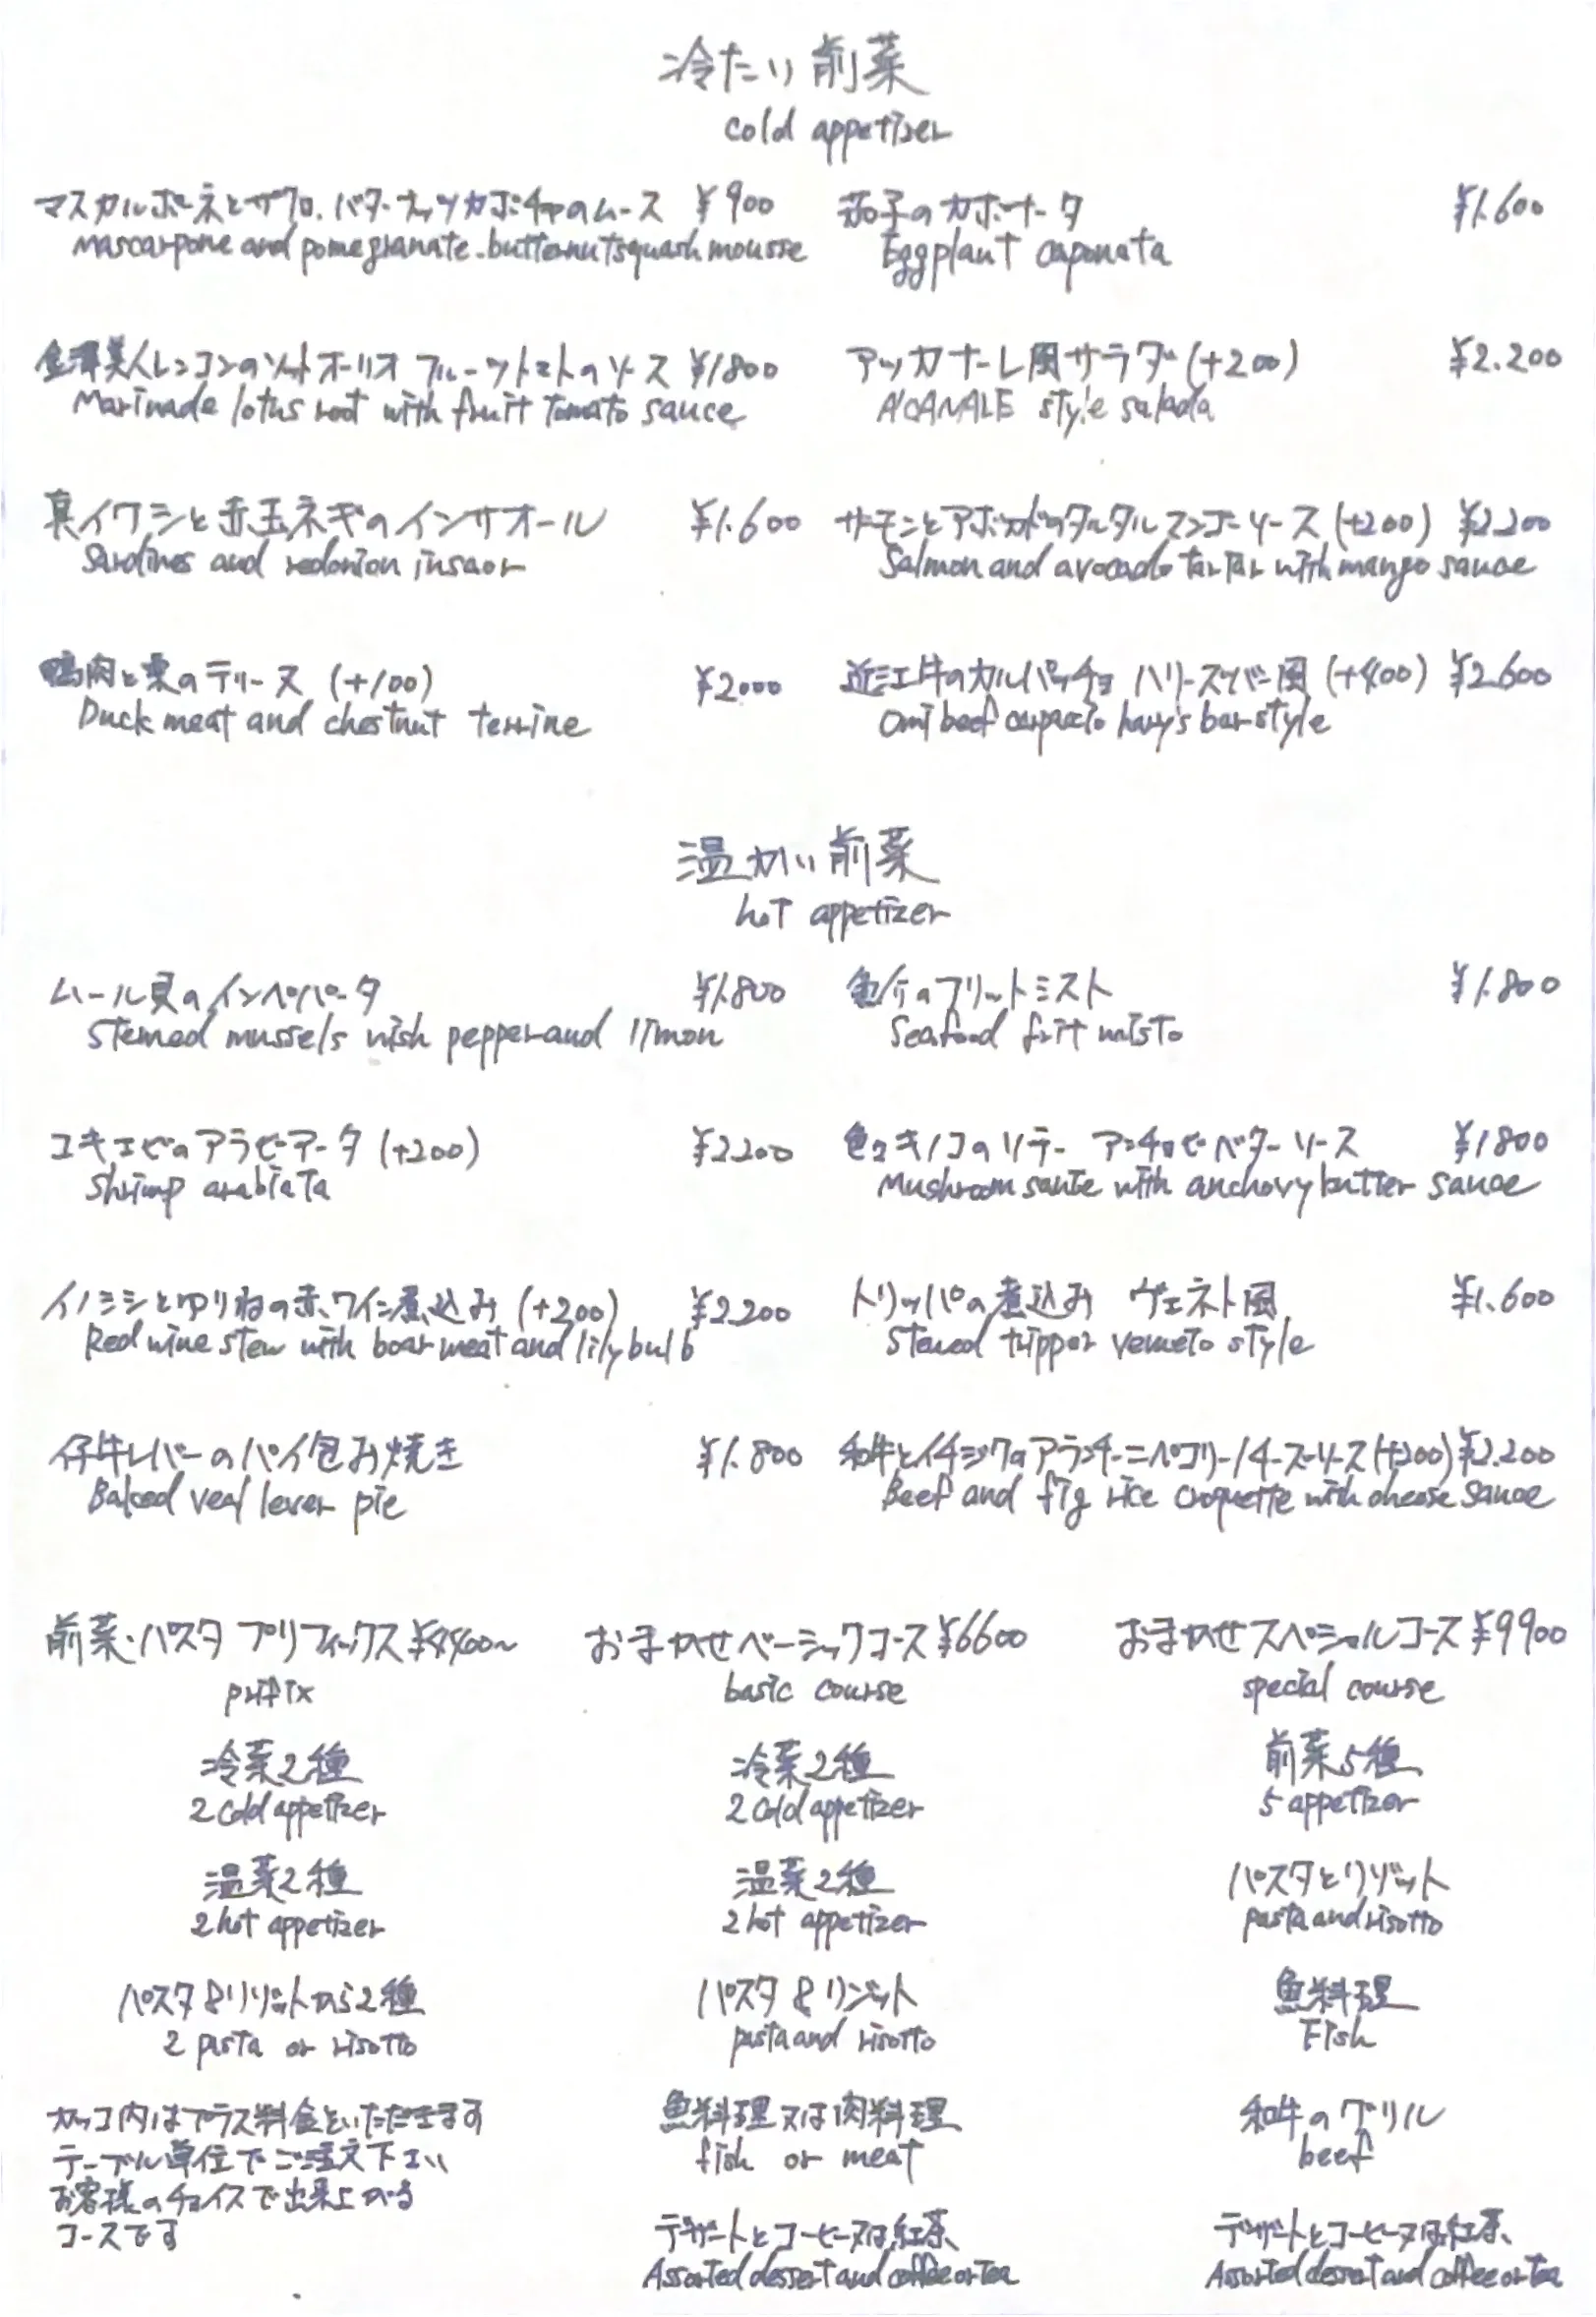 冷たい前菜
cold appetizer
マスカルポーネとザクロ、バターナッツカボチャのムース ¥900
mascarpone and pomegranate. butternutsquash mousse
茄子のカポナータ ¥1.600
Eggplant caponata
金澤美人レンコンのソットオーリオ フルーツトマトのソース ¥1800
Marinade lotus root with fruit tomato sauce
アッカナーレ風サラダ (+200) ¥2.200
A'CANALE style salada
真イワシと赤玉ネギのインサオール ¥1.600
Sardines and redonion insaor
サーモンとアボカドのタルタルマンゴーソース (+200) ¥2.200
Salmon and avocado tartar with mango sauce
鴨肉と栗のテリーヌ (+100) ¥2000
Duck meat and chestnut terrine
近江牛のカルパッチョ ハリーズバー風 (+400) ¥2600
Omi beef carpaccio hary's bar style
温かい前菜
hot appetizer
ムール貝のインペパータ ¥1.800
Stemed mussels wish pepper and limon
魚介のフリットミスト ¥1.800
Seafood frit misto
エキエビのアラビアータ (+200) ¥2200
Shrimp arabiata
色々キノコのソテー アンチョビバターソース ¥1800
Mushroom saute with anchovy butter sauce
イノシシとゆりねの赤ワイン煮込み (+200) ¥2.200
Red wine stew with boar meat and lily bulb
トリッパの煮込み ヴェネト風 ¥1.600
Stewed tripper veneto style
仔牛レバーのパイ包み焼き ¥1.800
Baked veal lever pie
和牛とイチジクのアランチーニペコリーノチーズソース (+200) ¥2.200
Beef and fig rice croquette with cheese sauce
前菜・パスタ プリフィックス ¥4400~
prifix
冷菜2種
2 cold appetizer
温菜2種
2 hot appetizer
パスタ&リゾットから2種
2 pasta or risotto
カッコ内はプラス料金をいただきます
テーブル単位でご注文下さい
お客様のチョイスで出来上がる
コースです
おまかせベーシックコース ¥6600
basic course
冷菜2種
2 cold appetizer
温菜2種
2 hot appetizer
パスタ&リゾット
pasta and risotto
魚料理又は肉料理
fish or meat
デザートとコーヒー又は紅茶
Assorted dessert and coffee or tea
おまかせスペシャルコース ¥9900
special course
前菜5種
5 appetizer
パスタとリゾット
pasta and risotto
魚料理
Fish
和牛のグリル
beef
デザートとコーヒー又は紅茶
Assorted dessert and coffee or tea